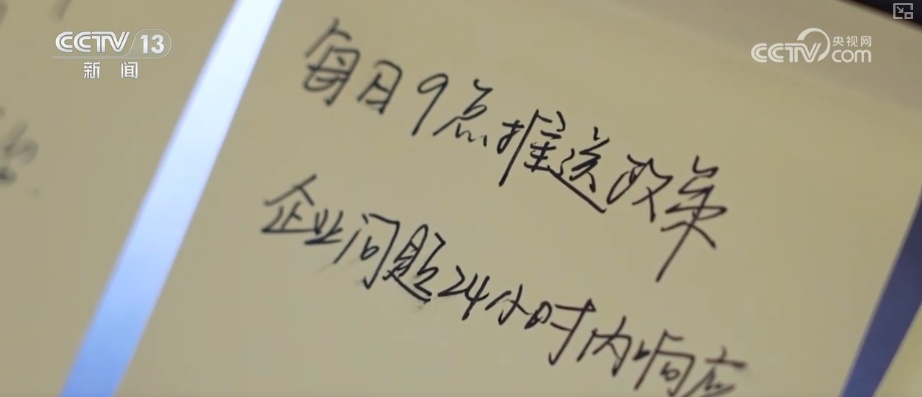 CCTV 13
新闻
CCTV 央视网
com
每日9点推送政策
企业问题24小时内响应